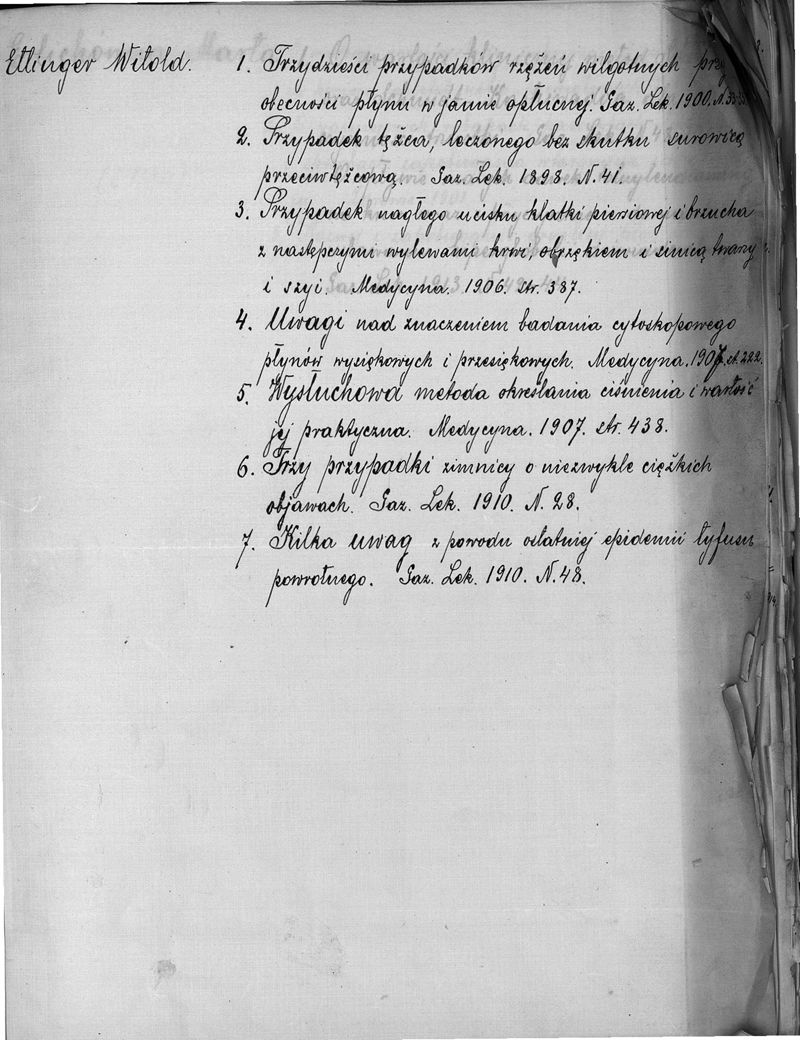 Etlinger Witold.
1. Trzydzieści przypadków rzężeń wilgotnych przy
obecności płynu w jamie opłucnej. Gaz. Lek. 1900. N.
2. Przypadek tężca, leczonego bez skutku surowicą
przeciwtężcową. Gaz. Lek. 1898. N. 41.
3. Przypadek nagłego ucisku klatki piersiowej i brzucha
z następczymi wylewami krwi, obrzękiem i sinicą twarzy
i szyi. Medycyna. 1906. str. 387.
4. Uwagi nad znaczeniem badania cytoskopowego
płynów wysiękowych i przesiękowych. Medycyna. 1907. st. 222.
5. Wysłuchowa metoda określania ciśnienia i wartość
jej praktyczna. Medycyna. 1907. str. 438.
6. Trzy przypadki zimnicy o niezwykle ciężkich
objawach. Gaz. Lek. 1910. N. 28.
7. Kilka uwag z powodu ostatniej epidemii tyfusu
powrotnego. Gaz. Lek. 1910. N. 48.